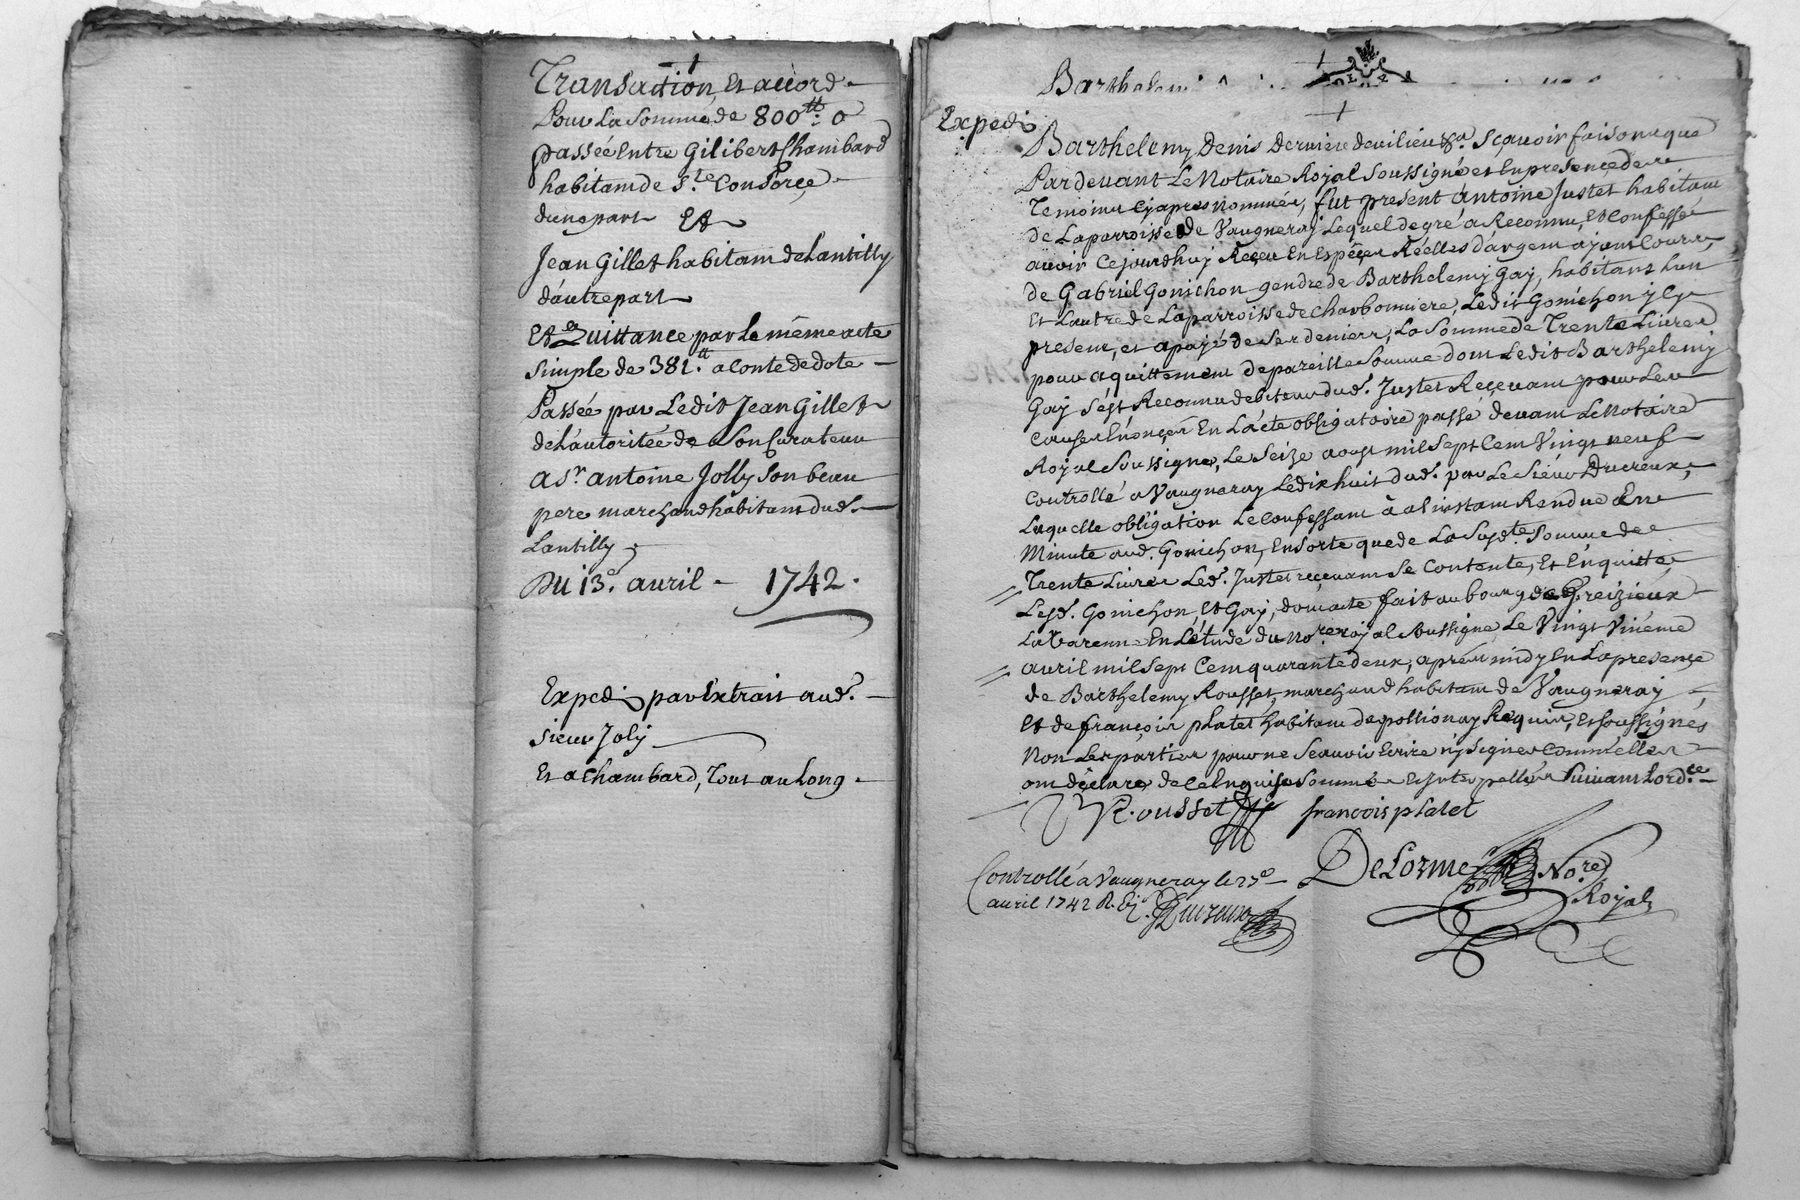 Transaction, Et accord
Pour La Somme de 800tt: 0
passée Entre Gilibert Chambard
habitam de Ste Consorce
dune part Et
Jean Gillet habitam de Lantilly
d'autre part
Et Quittance par Le même acte
simple de 381tt. a Conte de dote
Passée par Ledit Jean Gillet
de Lautoritée de Son Curateur
a Sr antoine Jolly Son beau
pere marchand habitant dud.
Lantilly
Du 13e. avril - 1742.
Expedi par Extrait aud.
sieur Joly
Et a Chambard, Tout au Long
Barthelemi
Expedi
Barthelemy Denis Derviere devilieu &a. Sçavoir faisons que
Pardevant Le Notaire Royal Soussigné et En presence de
Temoins Cy apres nommés, fut présent antoine Justet habitam
de Laparroisse de Vaugneray Lequel de gré a Reconnu, Et Confessé
avoir Cejourdhuy Reçeu En Espéçes Réelles dargem ayant Cours,
de Gabriel Gonichon gendre de Barthelemy Gay, habitans Lun
Et Lautre de Laparroisse de Charbonniere, Ledit Gonichon jcy
present, et apayé de Ses deniers, La Somme de Trente Livres
pour aquittement de pareille Somme dont Ledit Barthelemy
Gay S'est Reconnu debiteur dud. Justet Reçevant pour Les
Causes Enonçées En Lacte obligatoire passé devam Le Notaire
Royal Soussigné, Le Seize aoust mil Sept Cem Vingt neuf
Controllé a Vaugneray Le dix huit dud. par Le Sieur Ducreux,
Laquelle obligation Le Confessant à a l'instam Rendue En
Minute aud. Gonichon, En Sorte que de La Susdte. Somme de
Trente Livres Led. Justet reçevant Se Contente, Et En quitte
Lesd. Gonichon, Et Gay, dont acte fait au bourg de Greizieux
La Varenne En L'étude du Nore royal Soussigné, Le Vingt Uniéme
avril mil Sept Cem quarante deux, apres midy En La presençe
de Barthelemy Rousset, marchand habitam de Vaugneray
Et de françois platet habitant de pollionay Requis, Et Soussignés
Non Les parties pour ne Sçavoir Ecrire ny Signer Comme Elles
ont déclaré de Ce Enquises Sommées Et jnterpellées Suivant Lordce.
Rousset françois platet
DeLorme Nore
Royal
Controllé a Vaugneray le 27e
avril 1742 R. Ducreux